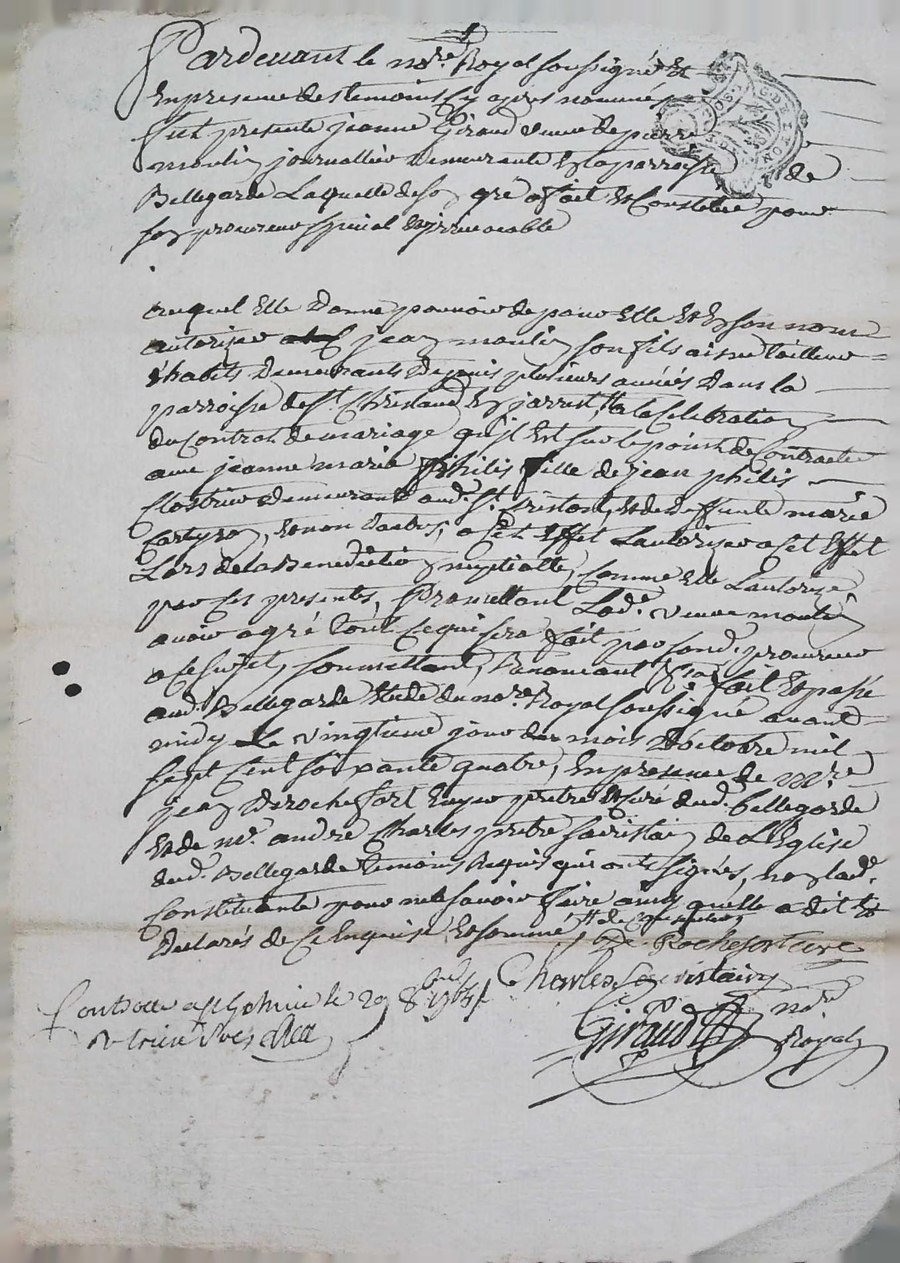 Pardevant le no.re Royal soussigné Et
En presence des temoins Cy apres nommés
fut presente jeanne Giraud veuve de pierre
moulin journallier demeurante En la parroisse de
Bellegarde Laquelle de son gré a fait Et Constitué pour
son procureur special Et irrevocable
auquel Elle Donne pouvoir de pour Elle Et En son nom
autoriser jean moulin son fils aisne tailleur
d'habits Demeurants Depuis plusieurs années Dans la
parroisse de St. Christaud En jarrest, a la Celebration
du Contrat de mariage qu'il Est sur le point de Contracter
avec jeanne marie philis fille de jean philis
Cloutrier demeurant aud. St. Cristant, Et de Deffunte marie
Et non d'autres, a Cet Effet Lautoriser a Cet Effet
Lors de la Benediction nuptialle, Comme Elle Lautorise
par Ces presentes, Promettant Lad.e veuve moulin
avoir agré tout Ce qui sera fait par sond. procureur
a Ce sujet, soumettant, Renoncant fait Et passé
aud. Bellegarde Etude du no.re Royal soussigné avant
midy Le vingtieme jour du mois d'octobre mil
sept Cent soixante quatre, En presence de
jean De rochefort pretre Et Curé dud. bellegarde
Et de mr. andré Charles pretre sacristain de L'Eglise
dud. Bellegarde temoins Requis qui ont signés, non lad.
Constituante pour ne le savoir faire ainsy quelle a dit Et
Declarés de Ce Enquise Et sommée
De Rochefort curé
Charles Sacristain
Controlle a le 29 8bre 1764
Giraud no.re
Royal